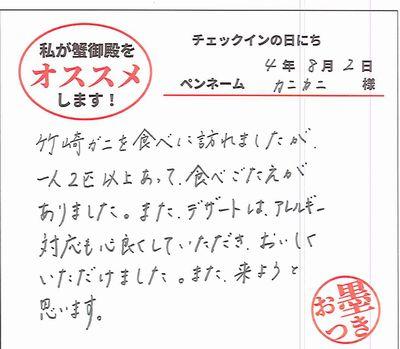 私が蟹御殿を
オススメ
します！
チェックインの日にち
4年8月2日
ペンネーム カニカニ 様
竹崎ガニを食べに訪れましたが、
一人2匹以上あって、食べごたえが
ありました。また、デザートは、アレルギー
対応も心良くしていただき、おいしく
いただけました。また、来ようと
思います。
お墨つき